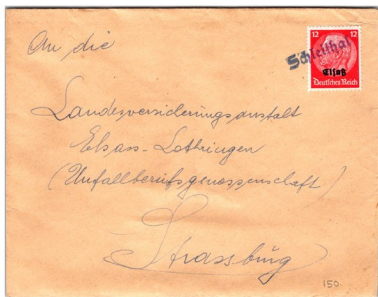 An die
12 12
Schleithal
Elsaß
Deutsches Reich
Landesversicherungsanstalt
Elsass-Lothringen
(Unfallberufsgenossenschaft)
Strassburg
150